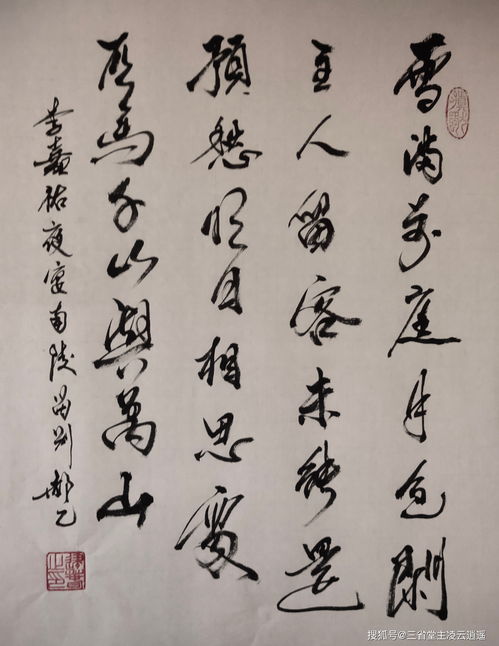 雪滿前庭月色閑
主人留客未能還
預愁明日相思處
匹馬千山與萬山
李嘉祐夜宴南陵留別
搜狐号@三省堂主凌云逍遥